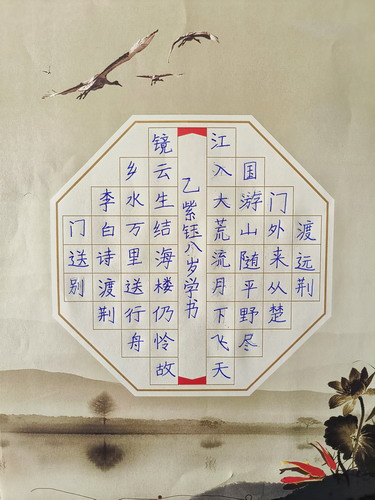 渡远荆
门外来从楚
国游山随平野尽
江入大荒流月下飞天
镜云生结海楼仍怜故
乡水万里送行舟
李白诗渡荆
门送别
乙紫钰八岁学书